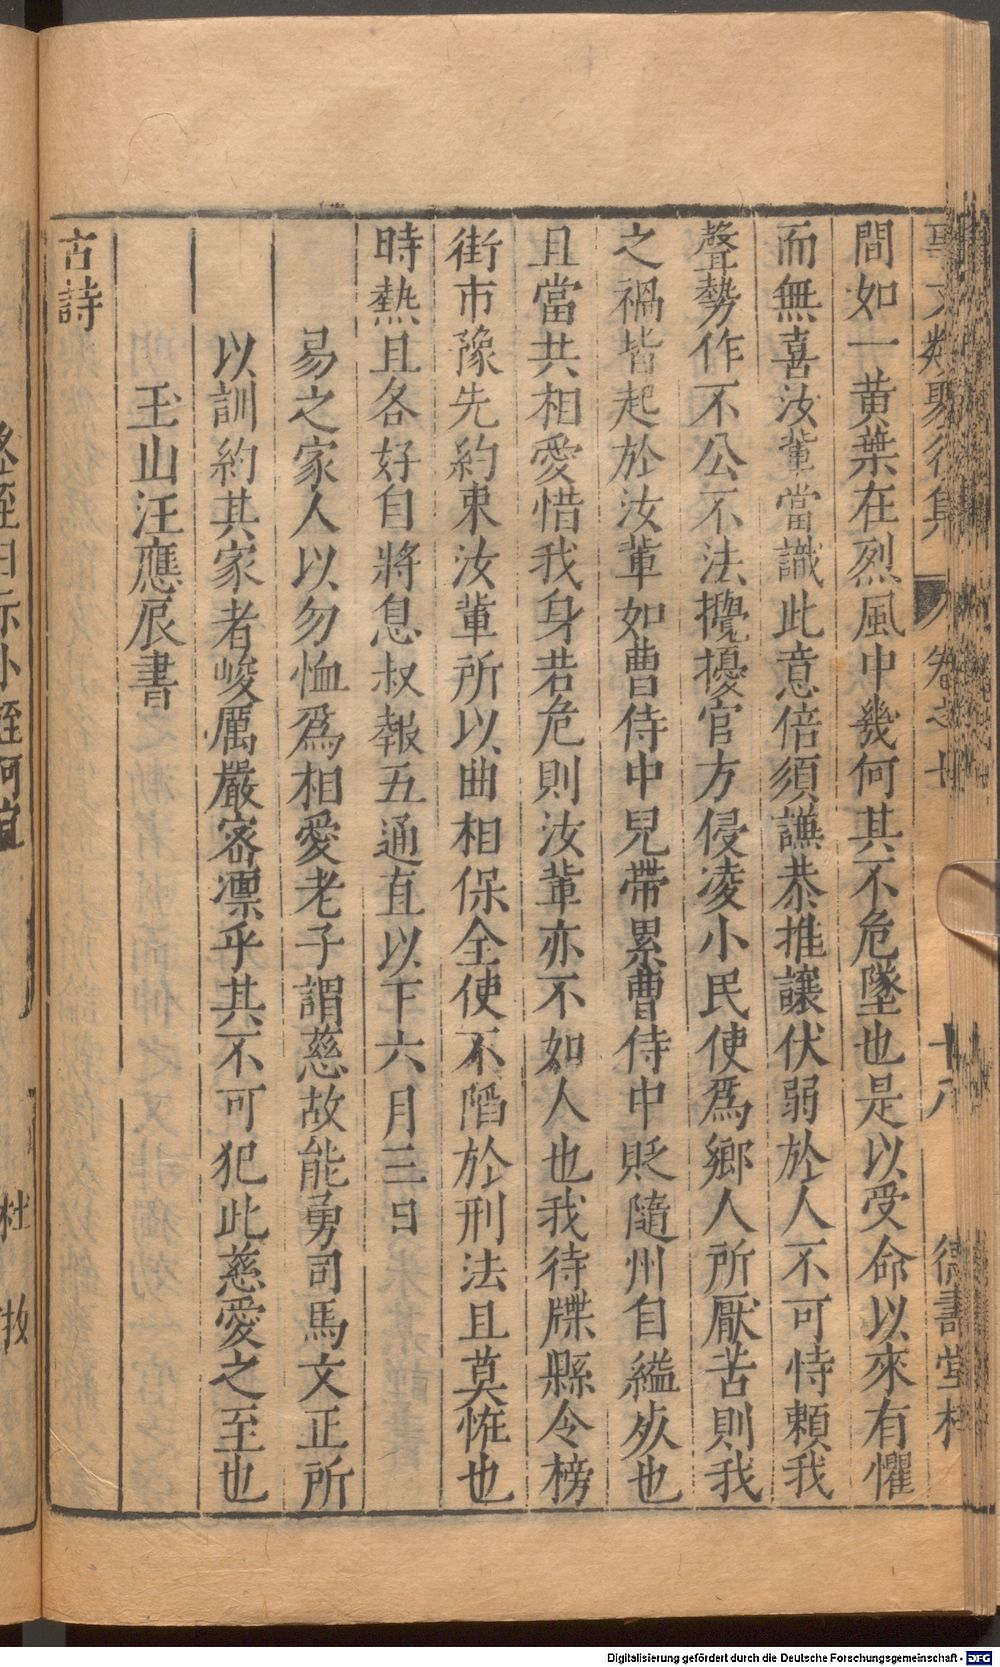 事文類聚後集 卷之十 十八 德壽堂梓
間如一黄葉在烈風中幾何其不危墜也是以受命以來有懼
而無喜汝輩當識此意倍須謙恭推讓伏弱於人不可恃頼我
聲勢作不公不法攪擾官方侵凌小民使爲鄉人所厭苦則我
之禍皆起於汝輩如曹侍中兒帶累曹侍中貶隨州自縊歿也
且當共相愛惜我身若危則汝輩亦不如人也我待牒縣令榜
街市豫先約束汝輩所以曲相保全使不陷於刑法且莫恠也
時熱且各好自將息叔報五通直以下六月三日
易之家人以勿恤爲相愛老子謂慈故能勇司馬文正所
以訓約其家者峻厲嚴宻凛乎其不可犯此慈愛之至也
玉山汪應辰書
古詩
姪
示小姪阿宜
杜牧
Digitalisierung gefördert durch die Deutsche Forschungsgemeinschaft - DFG